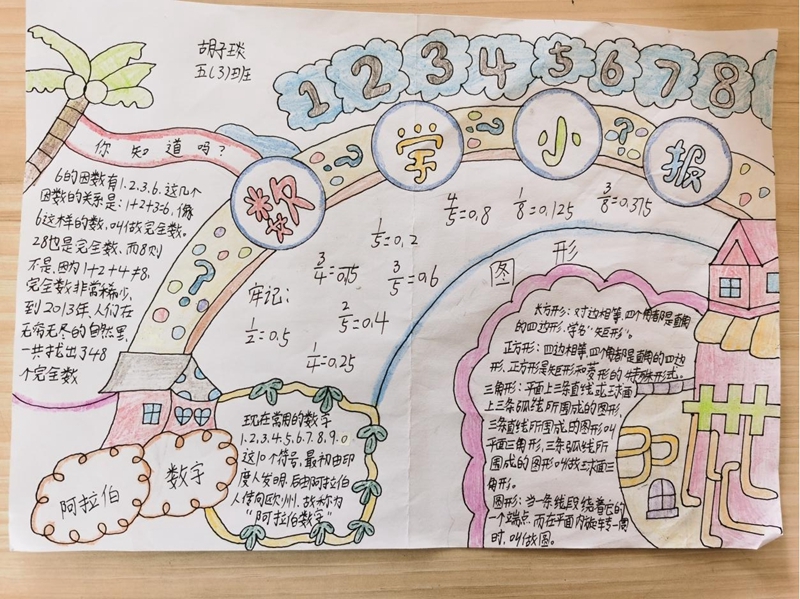 胡子琰
五(3)班
1 2 3 4 5 6 7 8
数学小报
你知道吗?
6的因数有1.2.3.6.这几个
因数的关系是:1+2+3=6,像
6这样的数,叫做完全数。
28也是完全数,而8则
不是,因为1+2+4≠8,
完全数非常稀少,
到2013年,人们在
无穷无尽的自然里,
一共找出了48
个完全数
牢记:
1/2=0.5
1/4=0.25
3/4=0.75
2/5=0.4
1/5=0.2
3/5=0.6
4/5=0.8
1/8=0.125
3/8=0.375
图形
长方形:对边相等,四个角都是直角
的四边形,学名“矩形”。
正方形:四边相等,四个角都是直角的四边
形,正方形是矩形和菱形的特殊形式。
三角形:平面上三条直线或球面
上三条弧线所围成的图形,
三条直线所围成的图形叫
平面三角形,三条弧线所
围成的图形叫做球面三
角形。
圆形:当一条线段绕着它的
一个端点,而在平面内旋转一周
时,叫做圆。
阿拉伯
数字
现在常用的数字
1.2.3.4.5.6.7.8.9.0
这10个符号,最初由印
度人发明,后由阿拉伯
人传向欧州,故称为
“阿拉伯数字”